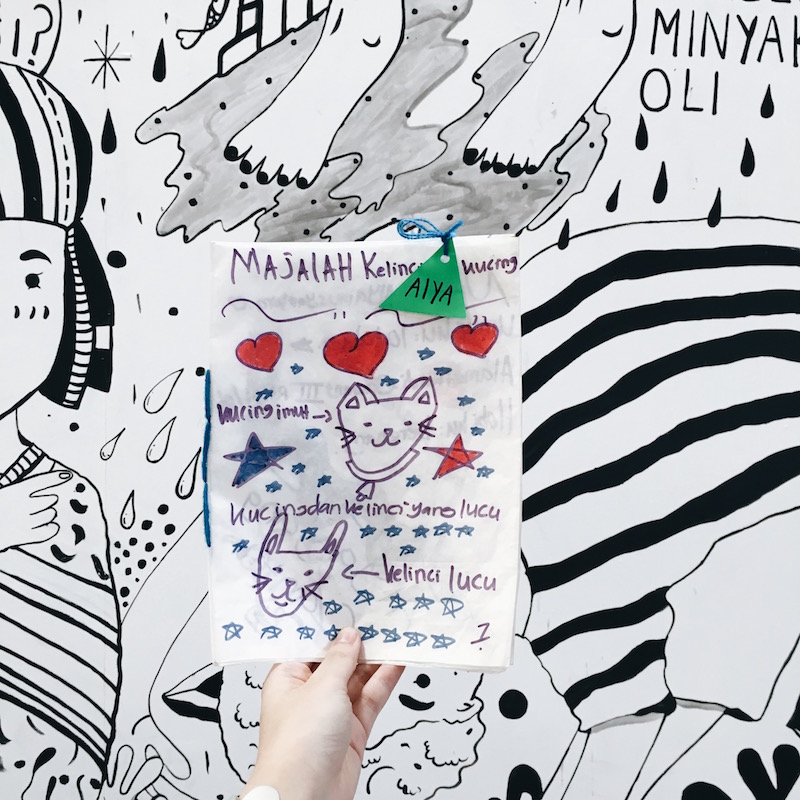 ?
MINYAK
OLI
MAJALAH Kelinci kucing
AIYA
kucing imut
kucing dan kelinci yang lucu
kelinci lucu
1